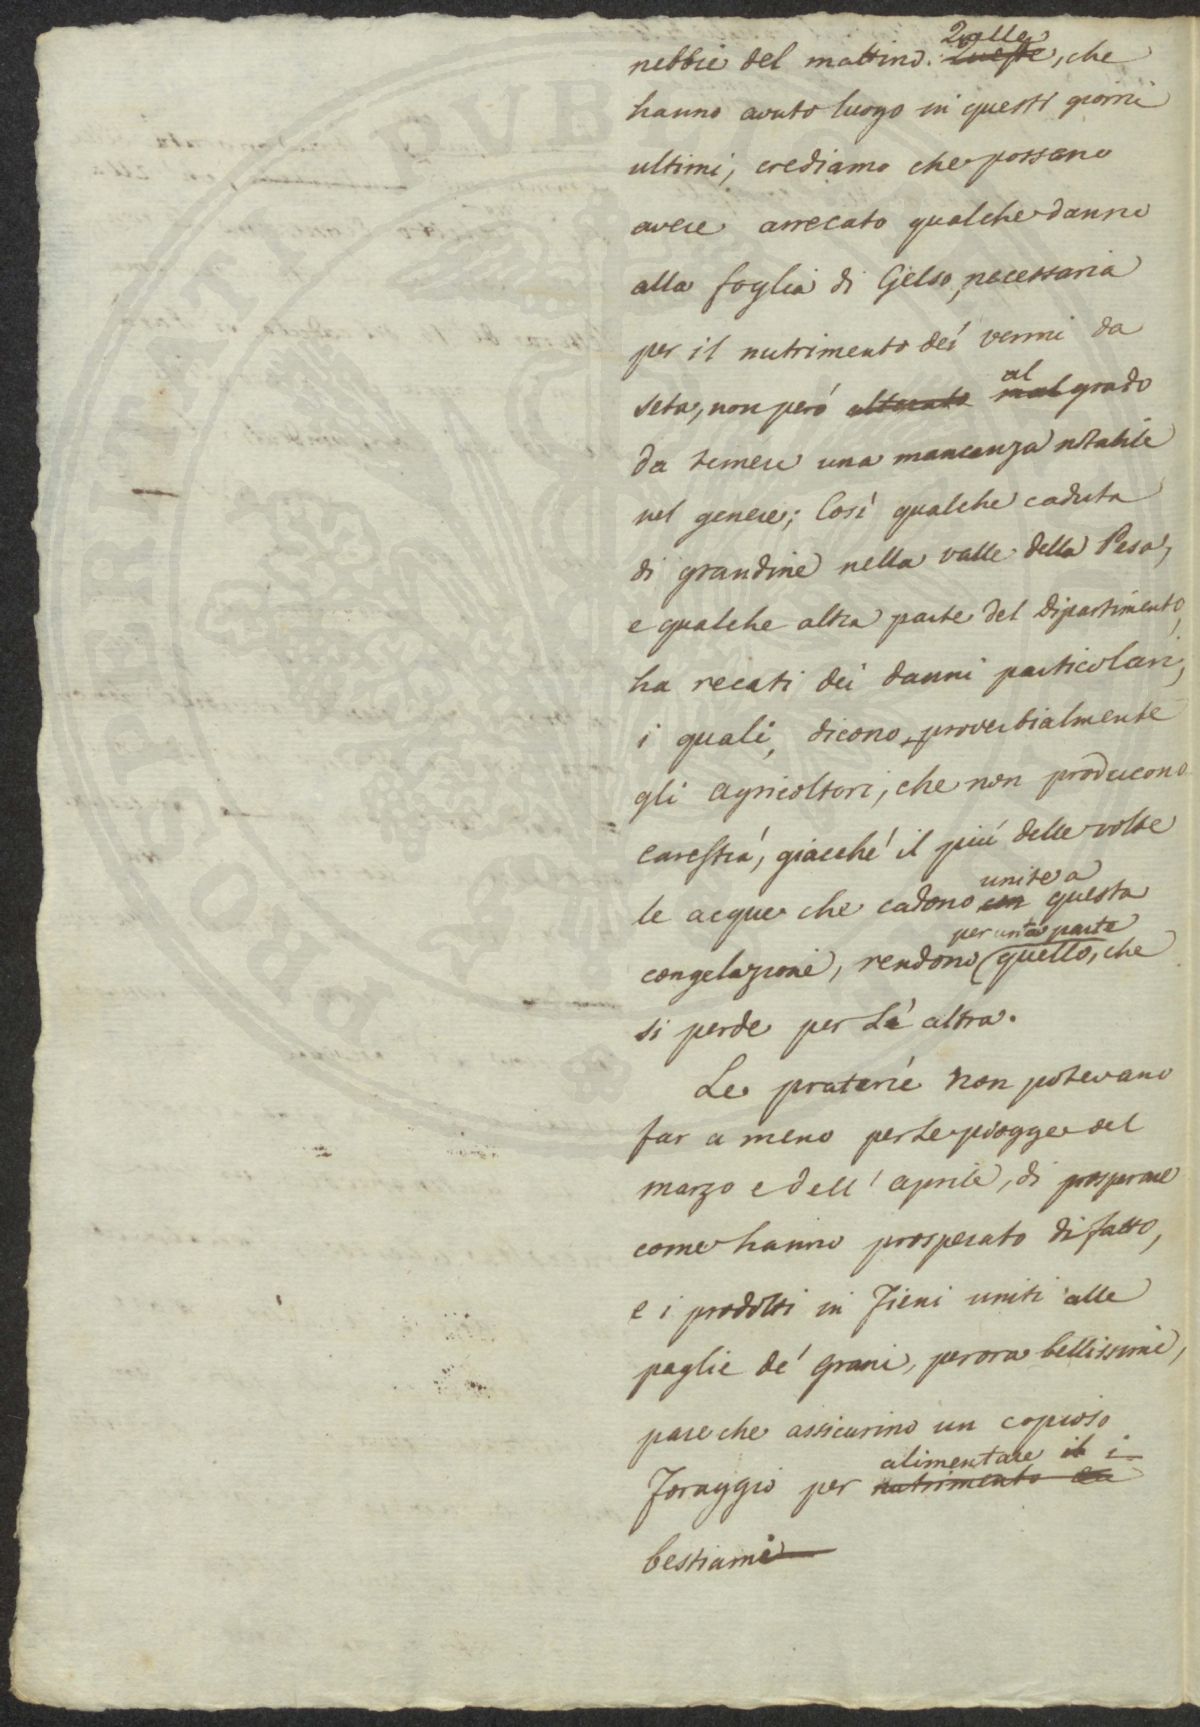 nebbie del mattino. Quelle ~~Queste~~, che
hanno avuto luogo in questi giorni
ultimi, crediamo che possano
avere arrecato qualche danno
alla foglia di Gelso, necessaria
per il nutrimento dei vermi da
seta, non però al grado
da temere una mancanza notabile
nel genere; Così qualche caduta
di grandine nella valle della Pesa,
e qualche altra parte del Dipartimento,
ha recati dei danni particolari,
i quali, dicono proverbialmente
gli agricoltori, che non producono
carestia, giacché il più delle volte
le acque che cadono unite a ~~con~~ questa
congelazione, rendono per una parte quello, che
si perde per L' altra.
Le praterie non potevano
far a meno per le piogge del
marzo e dell' aprile, di prosperare
come hanno prosperato di fatto,
e i prodotti in Fieni uniti alle
paglie de' grani, per ora bellissimi,
pare che assicurino un copioso
Foraggio per alimentare ~~il~~ i ~~nutrimento~~
bestiami